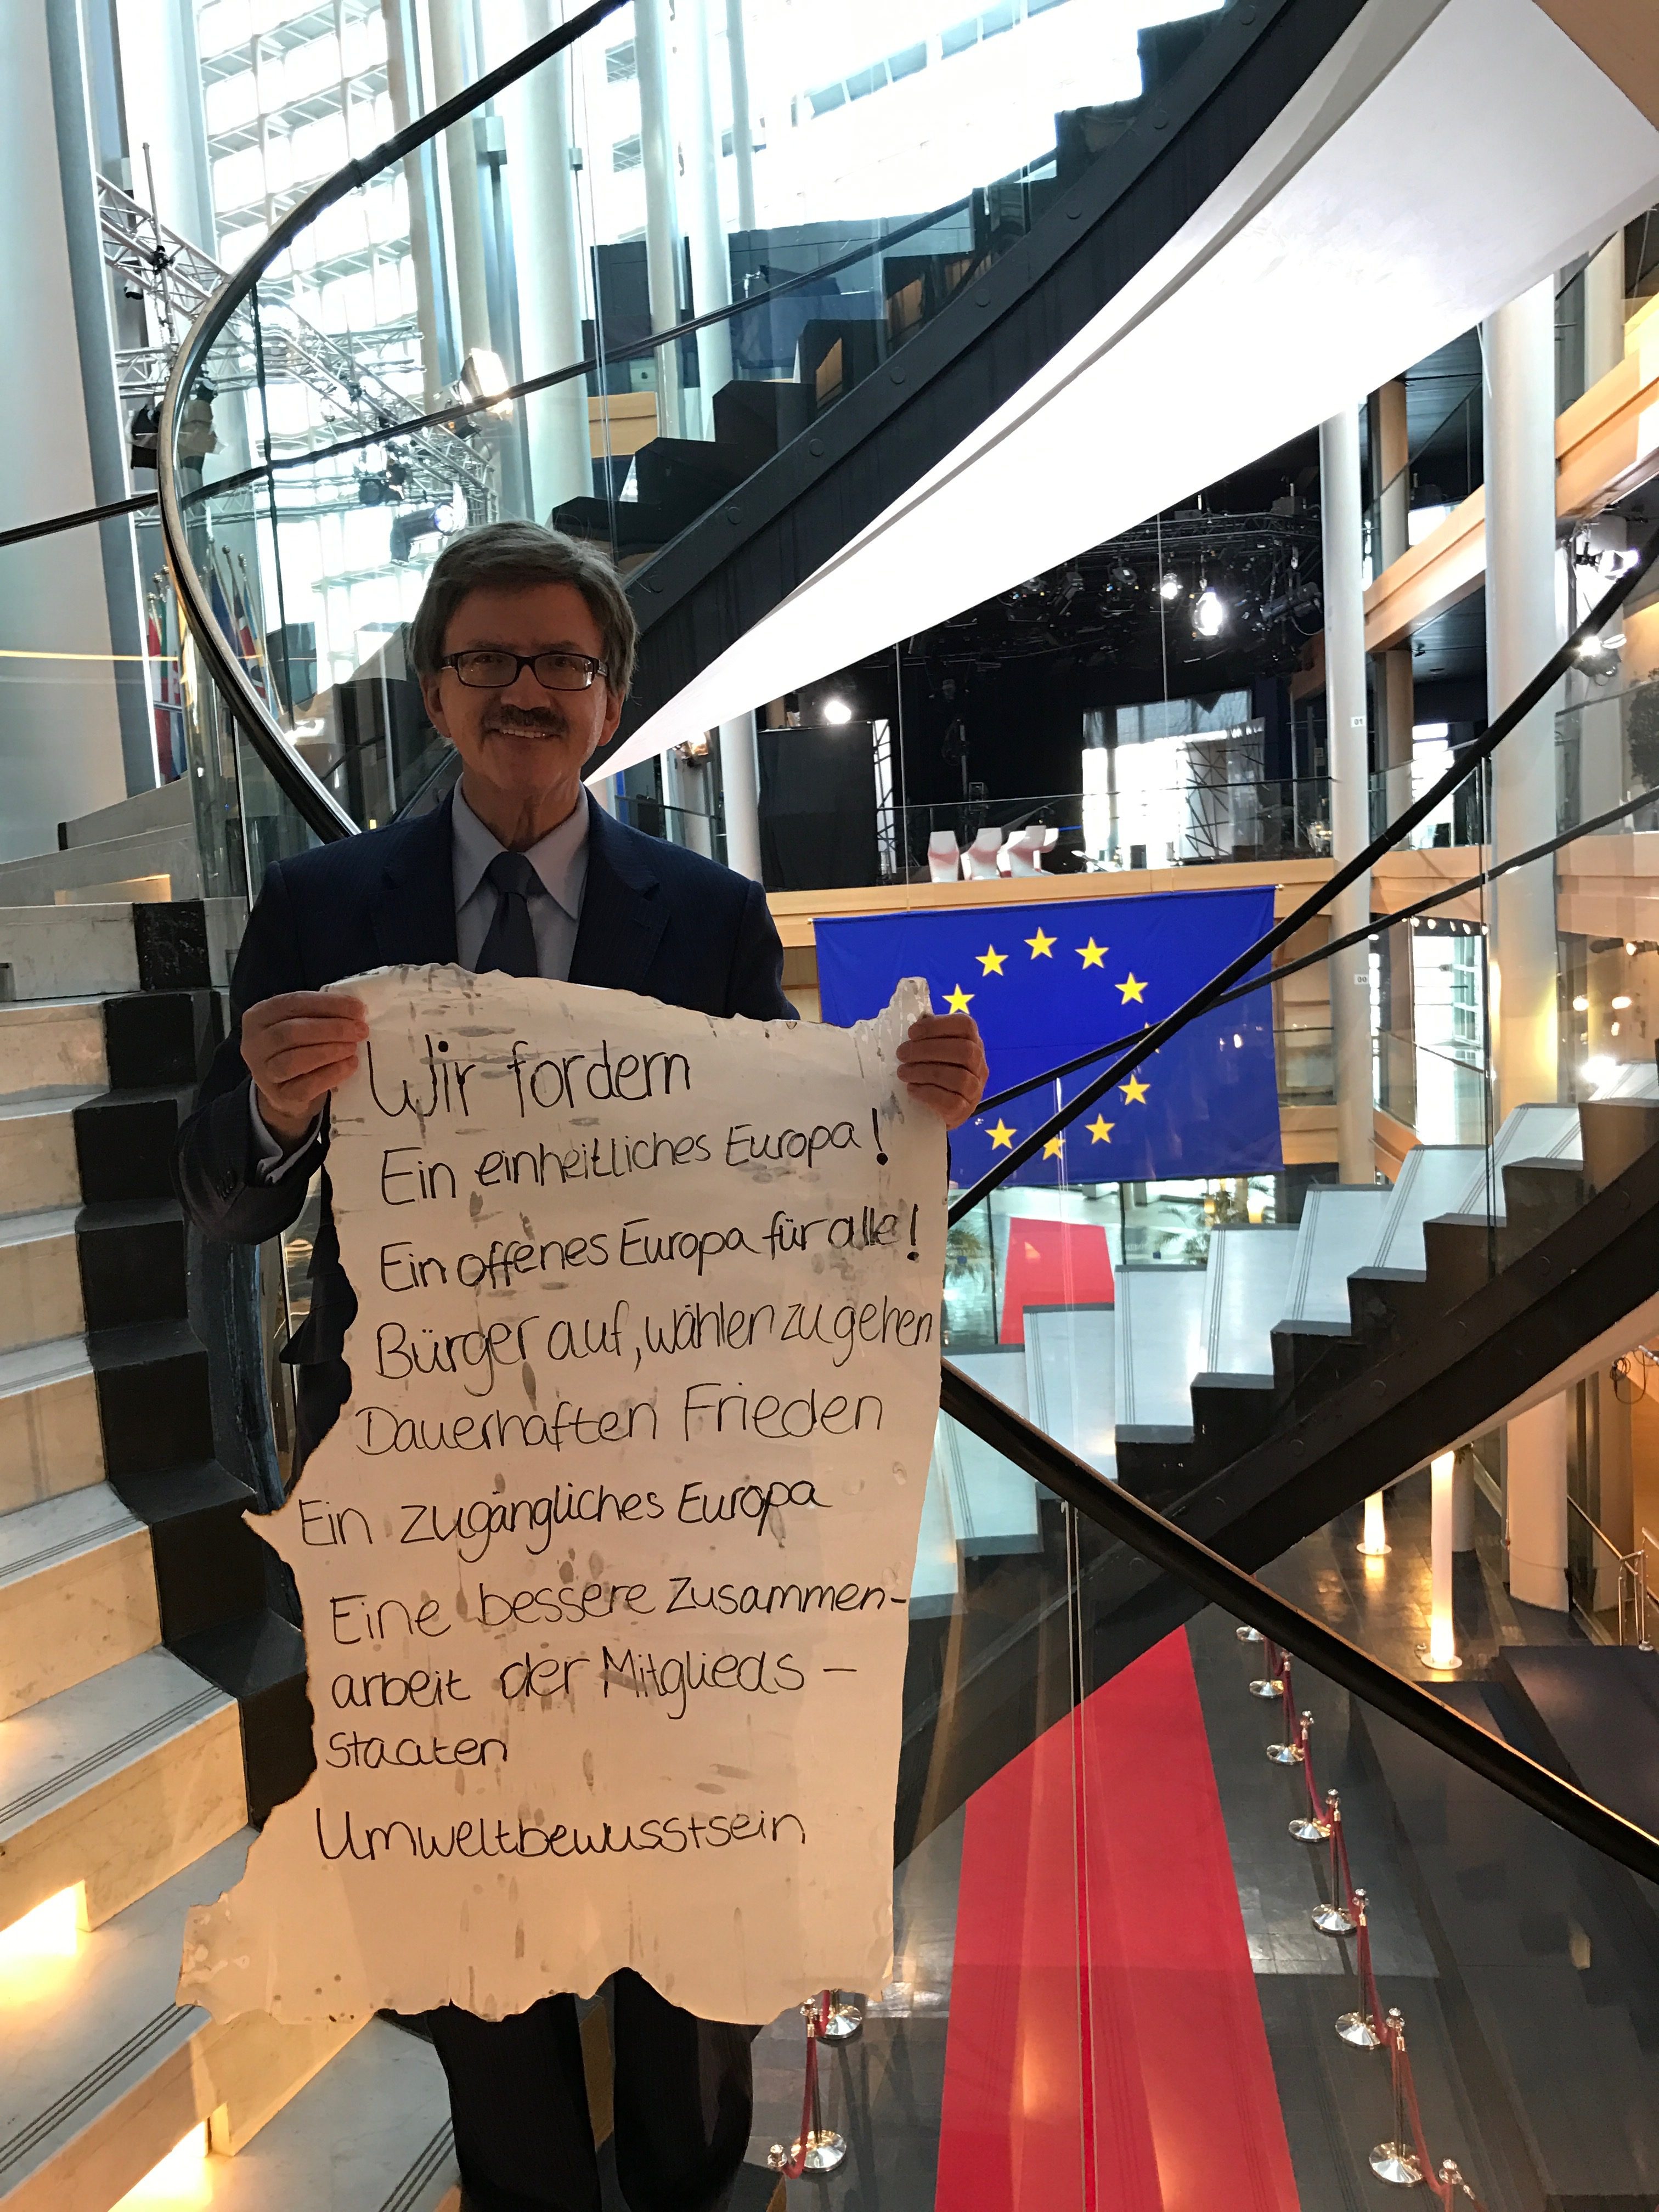 Wir fordern
Ein einheitliches Europa!
Ein offenes Europa für alle!
Bürger auf, wählen zu gehen
Dauerhaften Frieden
Ein zugängliches Europa
Eine bessere Zusammen-
arbeit der Mitglieds-
staaten
Umweltbewusstsein